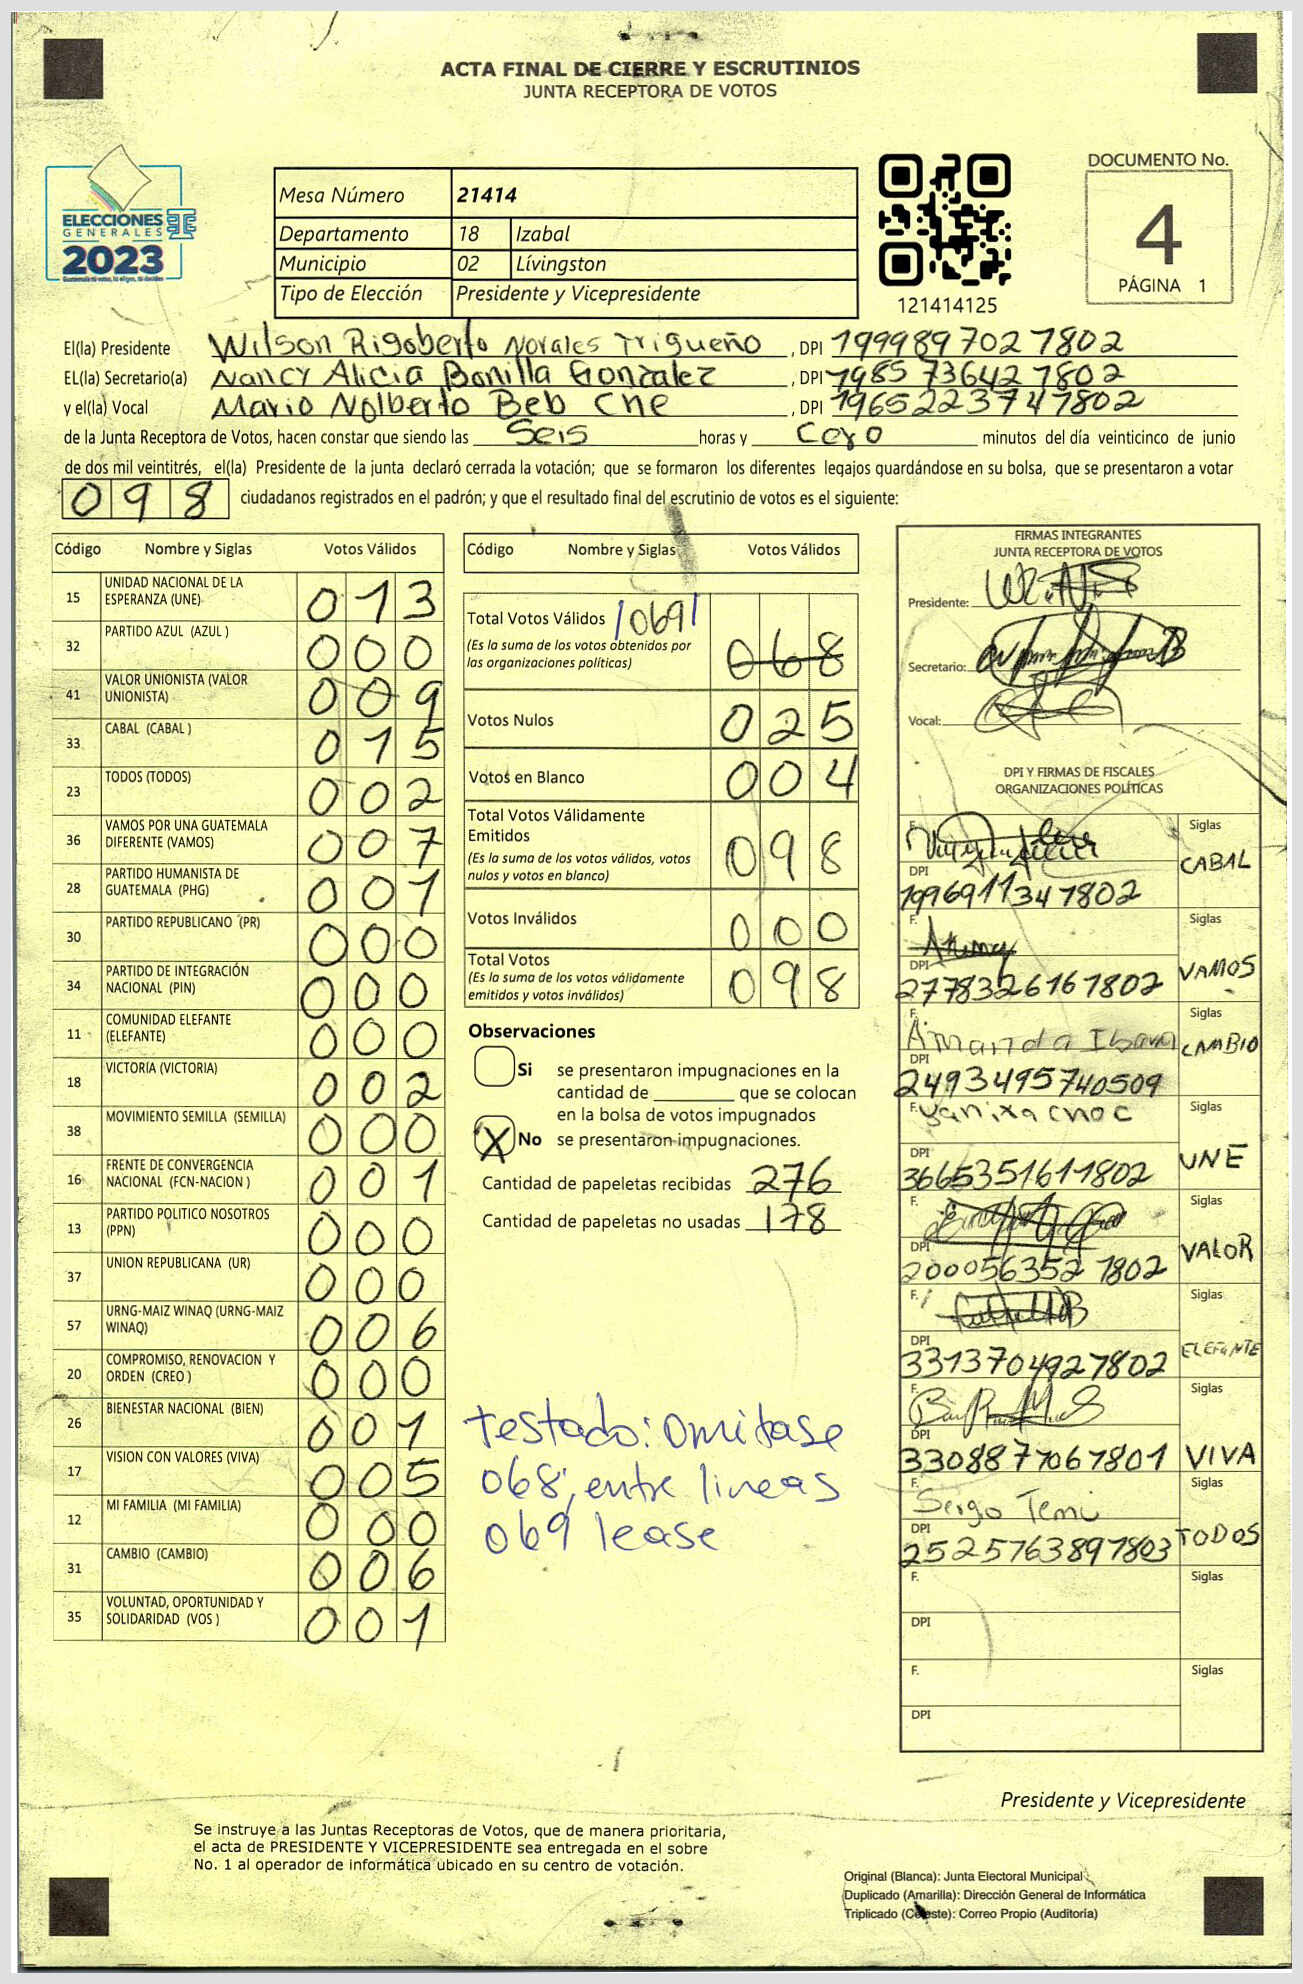 ACTA FINAL DE CIERRE Y ESCRUTINIOS
JUNTA RECEPTORA DE VOTOS
ELECCIONES
GENERALES
2023
Mesa Número 21414
Departamento 18 Izabal
Municipio 02 Lívingston
Tipo de Elección Presidente y Vicepresidente
121414125
DOCUMENTO No.
4
PÁGINA 1
El(la) Presidente Wilson Rigoberto Norales Trigueño , DPI 1999897027802
EL(la) Secretario(a) Nancy Alicia Bonilla Gonzalez , DPI 1985736427802
y el(la) Vocal Mario Nolberto Beb Che , DPI 1965223747802
de la Junta Receptora de Votos, hacen constar que siendo las Seis horas y Cero minutos del día veinticinco de junio
de dos mil veintitrés, el(la) Presidente de la junta declaró cerrada la votación; que se formaron los diferentes legajos guardándose en su bolsa, que se presentaron a votar
098 ciudadanos registrados en el padrón; y que el resultado final del escrutinio de votos es el siguiente:
Código Nombre y Siglas Votos Válidos
15 UNIDAD NACIONAL DE LA ESPERANZA (UNE) 013
32 PARTIDO AZUL (AZUL ) 000
41 VALOR UNIONISTA (VALOR UNIONISTA) 009
33 CABAL (CABAL ) 015
23 TODOS (TODOS) 002
36 VAMOS POR UNA GUATEMALA DIFERENTE (VAMOS) 007
28 PARTIDO HUMANISTA DE GUATEMALA (PHG) 001
30 PARTIDO REPUBLICANO (PR) 000
34 PARTIDO DE INTEGRACIÓN NACIONAL (PIN) 000
11 COMUNIDAD ELEFANTE (ELEFANTE) 000
18 VICTORIA (VICTORIA) 002
38 MOVIMIENTO SEMILLA (SEMILLA) 000
16 FRENTE DE CONVERGENCIA NACIONAL (FCN-NACION ) 001
13 PARTIDO POLITICO NOSOTROS (PPN) 000
37 UNION REPUBLICANA (UR) 000
57 URNG-MAIZ WINAQ (URNG-MAIZ WINAQ) 006
20 COMPROMISO, RENOVACION Y ORDEN (CREO ) 000
26 BIENESTAR NACIONAL (BIEN) 001
17 VISION CON VALORES (VIVA) 005
12 MI FAMILIA (MI FAMILIA) 000
31 CAMBIO (CAMBIO) 006
35 VOLUNTAD, OPORTUNIDAD Y SOLIDARIDAD (VOS ) 001
Código Nombre y Siglas Votos Válidos
Total Votos Válidos /069/
(Es la suma de los votos obtenidos por las organizaciones políticas) 068
Votos Nulos 025
Votos en Blanco 004
Total Votos Válidamente Emitidos
(Es la suma de los votos válidos, votos nulos y votos en blanco) 098
Votos Inválidos 000
Total Votos
(Es la suma de los votos válidamente emitidos y votos inválidos) 098
Observaciones
Si se presentaron impugnaciones en la
cantidad de ________ que se colocan
en la bolsa de votos impugnados
X No se presentaron impugnaciones.
Cantidad de papeletas recibidas 276
Cantidad de papeletas no usadas 178
testado: omitase
068; entre lineas
069 lease
FIRMAS INTEGRANTES
JUNTA RECEPTORA DE VOTOS
Presidente:
Secretario:
Vocal:
DPI Y FIRMAS DE FISCALES
ORGANIZACIONES POLÍTICAS
F. Siglas
DPI 1996911347802 CABAL
F. Siglas
DPI 2778326167802 VAMOS
F. Amanda Siglas
DPI 2493495740509 CAMBIO
F. Yanixa Choc Siglas
DPI 3665351611802 UNE
F. Siglas
DPI 2000563527802 VALOR
F. Siglas
DPI 3313704927802 ELEFANTE
F. Siglas
DPI 3308877067801 VIVA
F. Sergo Temi Siglas
DPI 2525763897803 TODOS
F. Siglas
DPI
F. Siglas
DPI
Presidente y Vicepresidente
Se instruye a las Juntas Receptoras de Votos, que de manera prioritaria,
el acta de PRESIDENTE Y VICEPRESIDENTE sea entregada en el sobre
No. 1 al operador de informática ubicado en su centro de votación.
Original (Blanca): Junta Electoral Municipal
Duplicado (Amarilla): Dirección General de Informática
Triplicado (Celeste): Correo Propio (Auditoría)